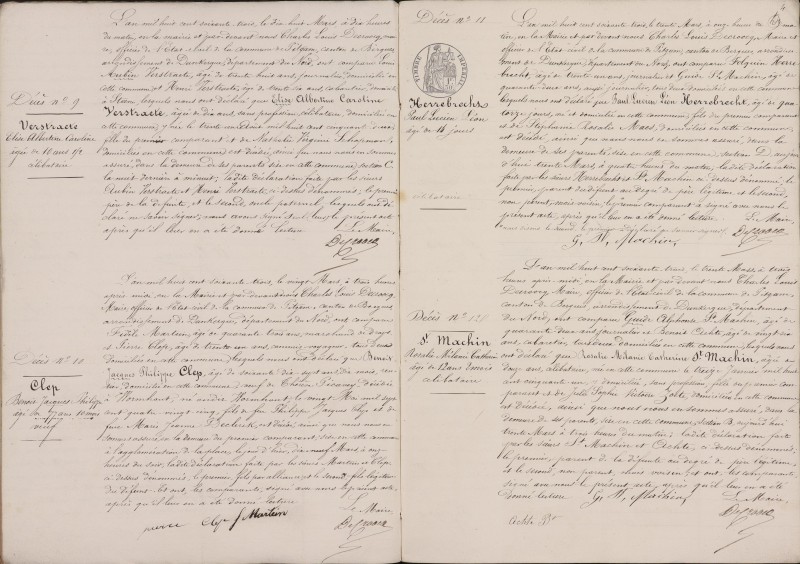 Décès n° 9
Verstraete
Elise Albertine Caroline
âgée de 18 ans 1/2
célibataire
L'an mil huit cent soixante trois, le dix huit Mars à dix heures
du matin, en la mairie et par devant nous Charles Louis Decrocq, mai-
re, officier de l'Etat civil de la commune de Pitgam, canton de Bergues,
arrondissement de Dunkerque, département du Nord, ont comparu Louis
Aubin Verstraete, âgé de trente huit ans, journalier, domicilié en
cette commune et Henri Verstraete, âgé de
à Steene, lesquels nous ont déclaré que Elise Albertine Caroline
Verstraete, âgée de dix ans, sans profession, célibataire, domiciliée en
cette commune, y née le
fille du premier comparant et de Nathalie
domiciliés en cette commune, est décédée, ainsi que nous nous en sommes
assuré, dans la demeure de ses parents sise en cette commune, section C,
la nuit dernière à minuit; la dite déclaration faite par les sieurs
Aubin Verstraete et Henri Verstraete ci dessus dénommés; le premier
père de la défunte, et le second, oncle paternel, lesquels ont dé-
claré ne savoir signer; nous avons signé seul le présent acte
après qu'il leur en a été donné lecture.
Le Maire,
Decrocq
Décès n° 10
Clep
Benoit Jacques Philippe
âgé de 77 ans 10 mois
veuf
L'an mil huit cent soixante trois, le vingt Mars à trois heures
après midi en la Mairie et par devant nous Charles Louis Decrocq,
Maire, officier de l'état civil de la commune de Pitgam, canton de Bergues
arrondissement de Dunkerque, département du Nord, ont comparu
Fidèle Martein, âgé de quarante trois ans, marchand de draps
et Pierre Clep, âgé de trente un ans, commis voyageur, tous deux
domiciliés en cette commune, lesquels nous ont déclaré que Benoit
Jacques Philippe Clep, âgé de soixante dix sept ans dix mois,
domicilié en cette commune, veuf de
né audit Wormhout, le vingt Mai mil sept
cent quatre vingt cinq, fils de feu Philippe Jacques Clep et de
feue Marie Jeanne Declerck, est décédé, ainsi que nous nous en
sommes assuré, en la demeure du premier comparant, sise en cette commune
à l'agglomération de la place, le jour d'hier, dix neuf Mars à
heures du soir, la dite déclaration faite par les sieurs Martein et Clep,
ci dessus dénommés; le premier, fils par alliance et le second, fils légitime
du défunt et ont, les comparants, signé avec nous le présent acte,
après qu'il leur en a été donné lecture.
Le Maire
pierre Clep f Martein
Decrocq
Décès n° 11
TIMBRE IMPERIAL
Herrebrecht
Paul Lucien Léon
âgé de 14 jours
célibataire
L'an mil huit cent soixante trois, le trente Mars, à onze heures du ma-
tin, en la Mairie et par devant nous Charles Louis Decrocq, Maire et
officier de l'Etat civil de la commune de Pitgam, canton de Bergues arrondis-
sement de Dunkerque, département du Nord, ont comparu
Herrebrecht, âgé de trente un ans, journalier et Guide St Machin, âgé de
quarante deux ans, aussi journalier, tous deux domiciliés en cette commune,
lesquels nous ont déclaré que Paul Lucien Léon Herrebrecht, âgé de qua-
torze jours, né et domicilié en cette commune, fils du premier comparant
et de Stéphanie Rosalie Maes, domiciliés en cette commune,
est décédé, ainsi que nous nous en sommes assuré, dans la
demeure de ses parents sise en cette commune, section D, aujour-
d'hui trente Mars, à quatre heures du matin; la dite déclaration
faite par les sieurs Herrebrecht et St Machin ci dessus dénommés,
le premier, parent du défunt au degré de père légitime, et le second,
non parent, mais voisin, le premier comparant a signé avec nous le
présent acte, après qu'il leur en a été donné lecture.
Le Maire,
G. St. Machin
Decrocq
Décès n° 12
St Machin
Rosalie Mélanie Catherine
âgée de 12 ans 2 mois
célibataire
L'an mil huit cent soixante trois, le trente Mars à trois
heures après-midi, en la Mairie et par devant nous Charles Louis
Decrocq, Maire, officier de l'Etat civil de la commune de Pitgam,
canton de Bergues arrondissement de Dunkerque, département
du Nord, ont comparu Guide Alphonse St Machin, âgé de
quarante deux ans journalier et Benoit Cichte, âgé de vingt six
ans, cabaretier, tous deux domiciliés en cette commune, lesquels nous
ont déclaré que Rosalie Mélanie Catherine St Machin, âgée de
douze ans, célibataire, née en cette commune le treize Janvier mil huit
cent cinquante un, y domiciliée, sans profession, fille du premier com-
parant et de Julie Sophie Victoire domiciliés en cette commune
est décédée, ainsi que nous nous en sommes assuré, dans la
demeure de ses parents, sise en cette commune, section B, aujourd'hui
trente Mars à trois heures du matin; la dite déclaration faite
par les sieurs St Machin et Cichte, ci dessus dénommés,
le premier, parent de la défunte au degré de père légitime,
et le second, non parent, mais voisin, et ont, les comparants
signé avec nous le présent acte, après qu'il leur en a été
donné lecture.
Le Maire,
G. St. Machin
Decrocq
Cichte Bt